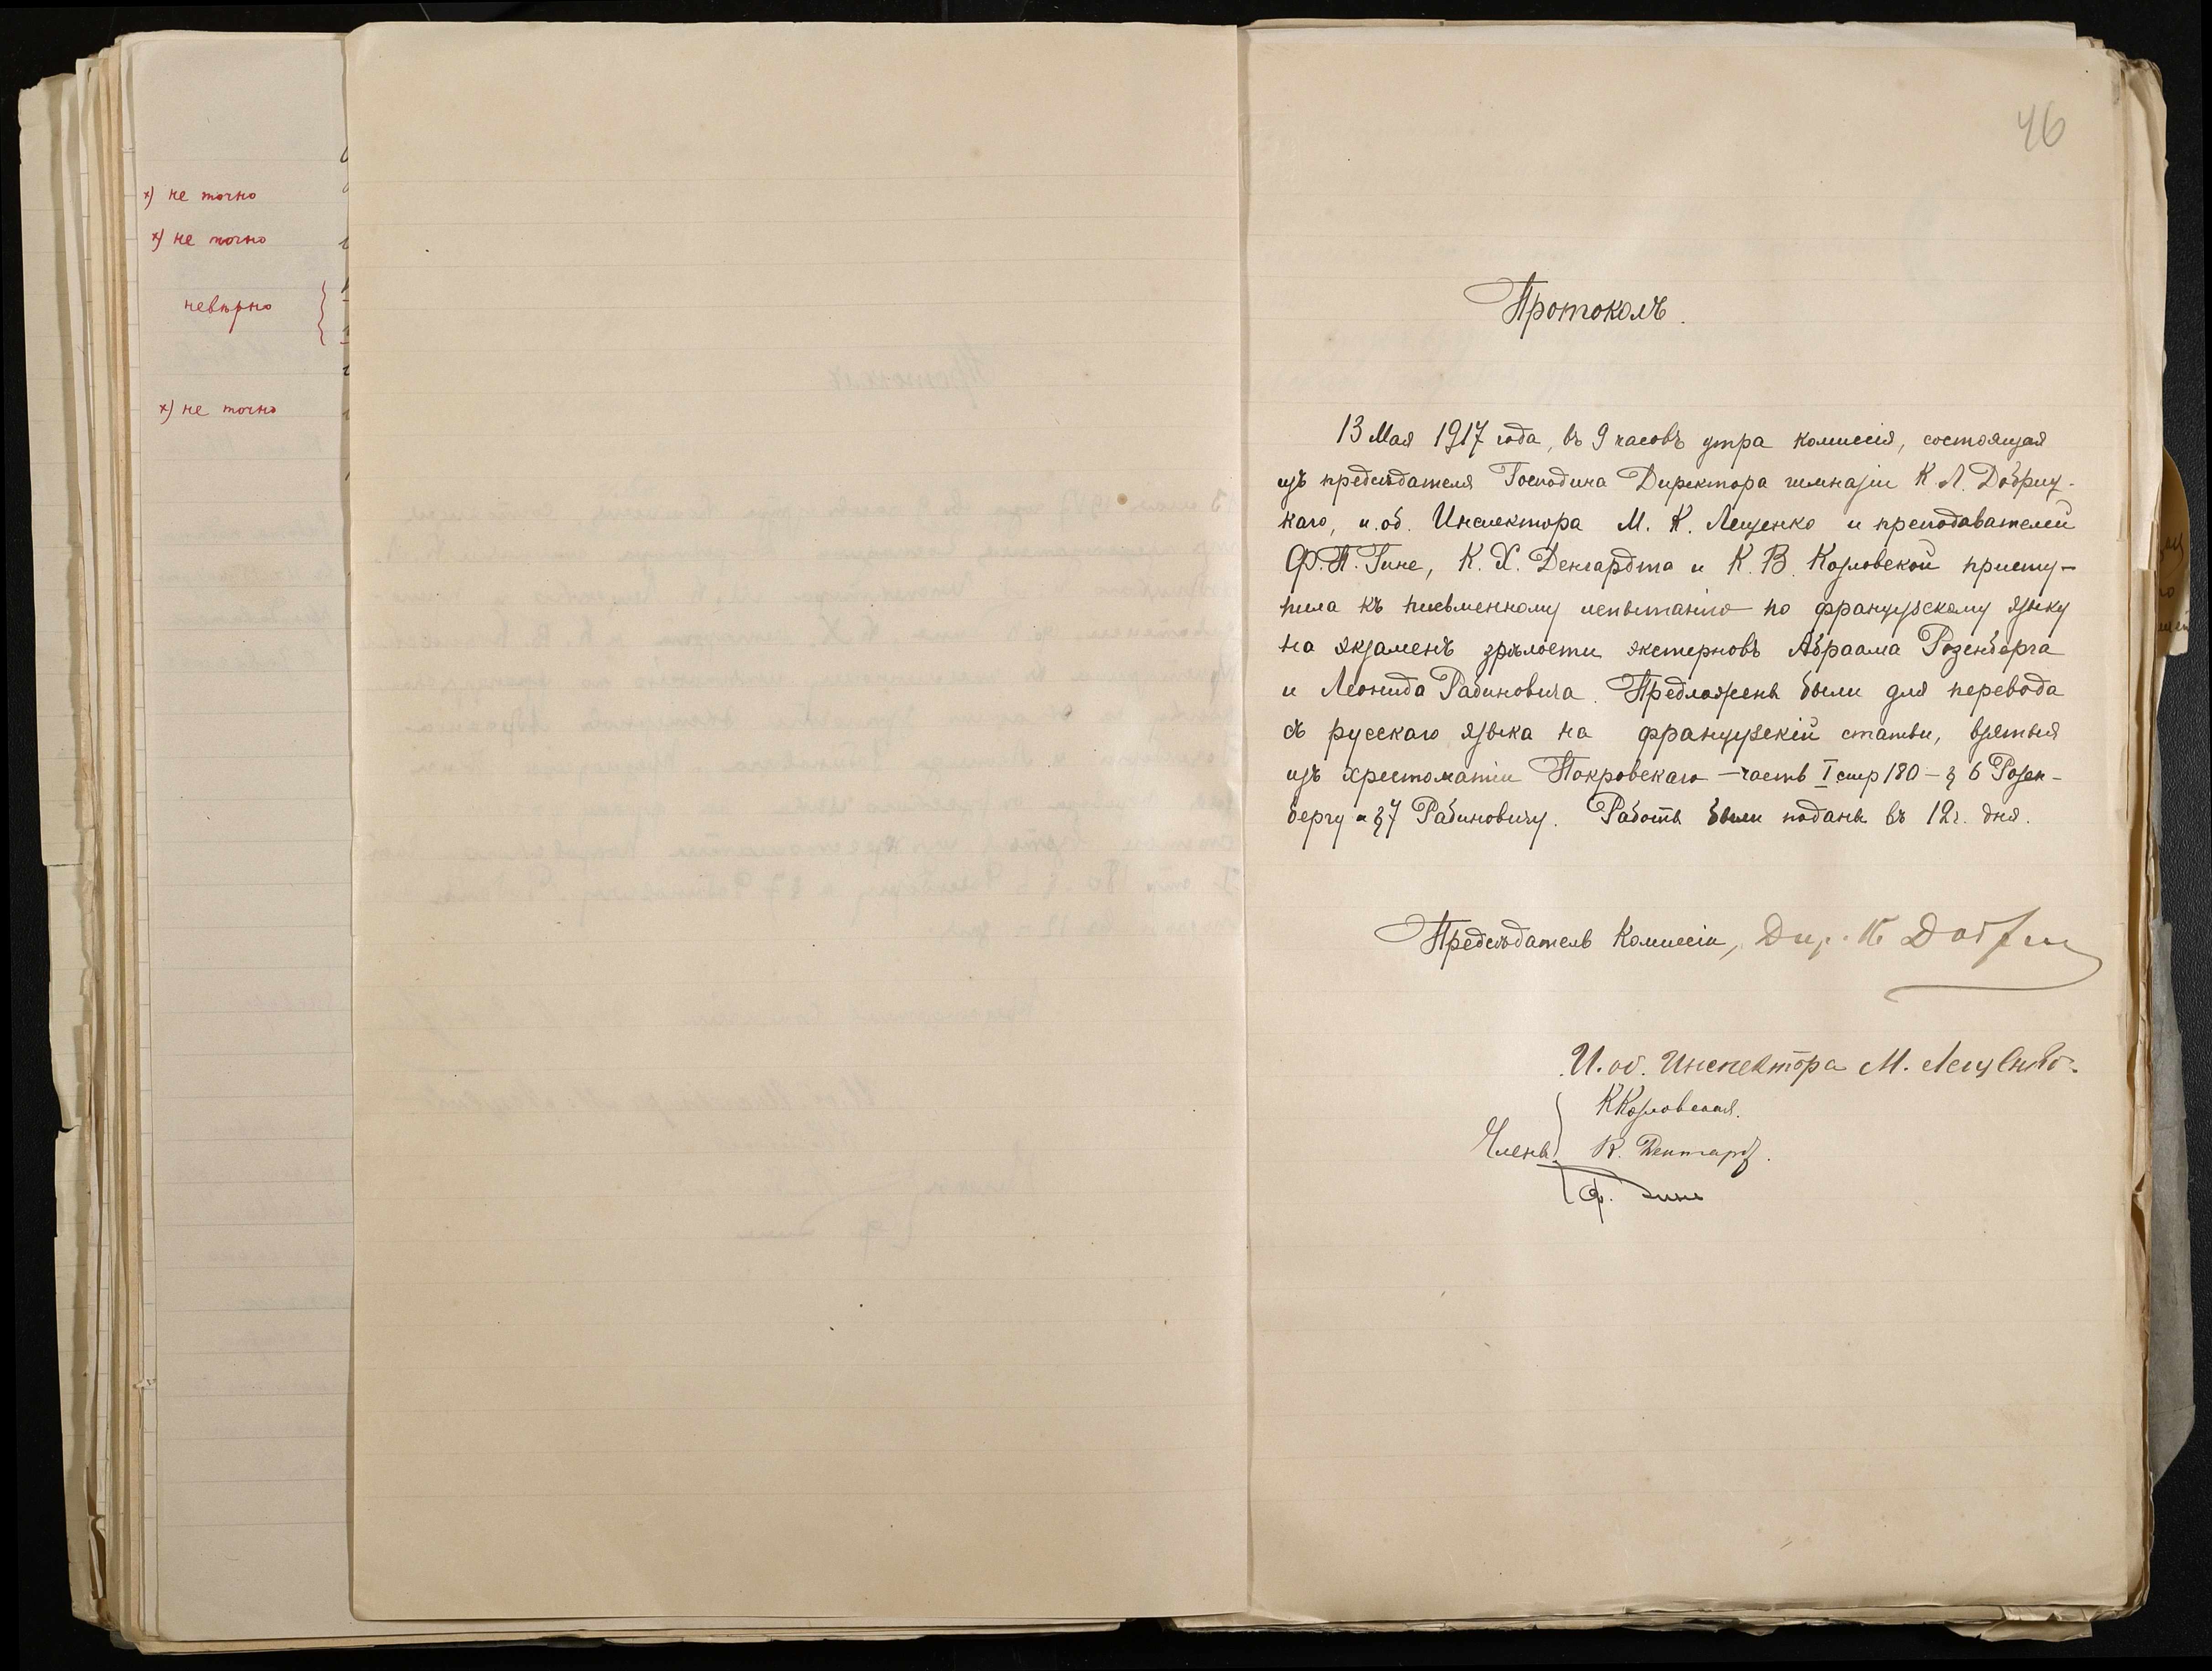 х) не точно
х) не точно
невѣрно
х) не точно
46
Протоколъ.
13 Мая 1917 года, въ 9 часовъ утра комиссія, состоящая
изъ предсѣдателя Господина Директора гимназіи К. Л. Добриц-
каго, и. об. Инспектора М. К. Лещенко и преподавателей
Ф. П. Гине, К. Х. Денгардта и К. В. Козловской присту-
пила къ письменному испытанію по французскому языку
на экзаменъ зрѣлости экстерновъ Абраама Розенберга
и Леонида Рабиновича. Предложены были для перевода
съ русскаго языка на французскій статьи, взятыя
изъ хрестоматіи Покровскаго – часть I стр 180 – § 6 Розен-
бергу и § 7 Рабиновичу. Работы были поданы въ 12 ч. дня.
Предсѣдатель Комиссіи, Дир. К
И. об. Инспектора М. Лещенко.
К Козловская.
Члены К. Денгардт.
Ф. Гине